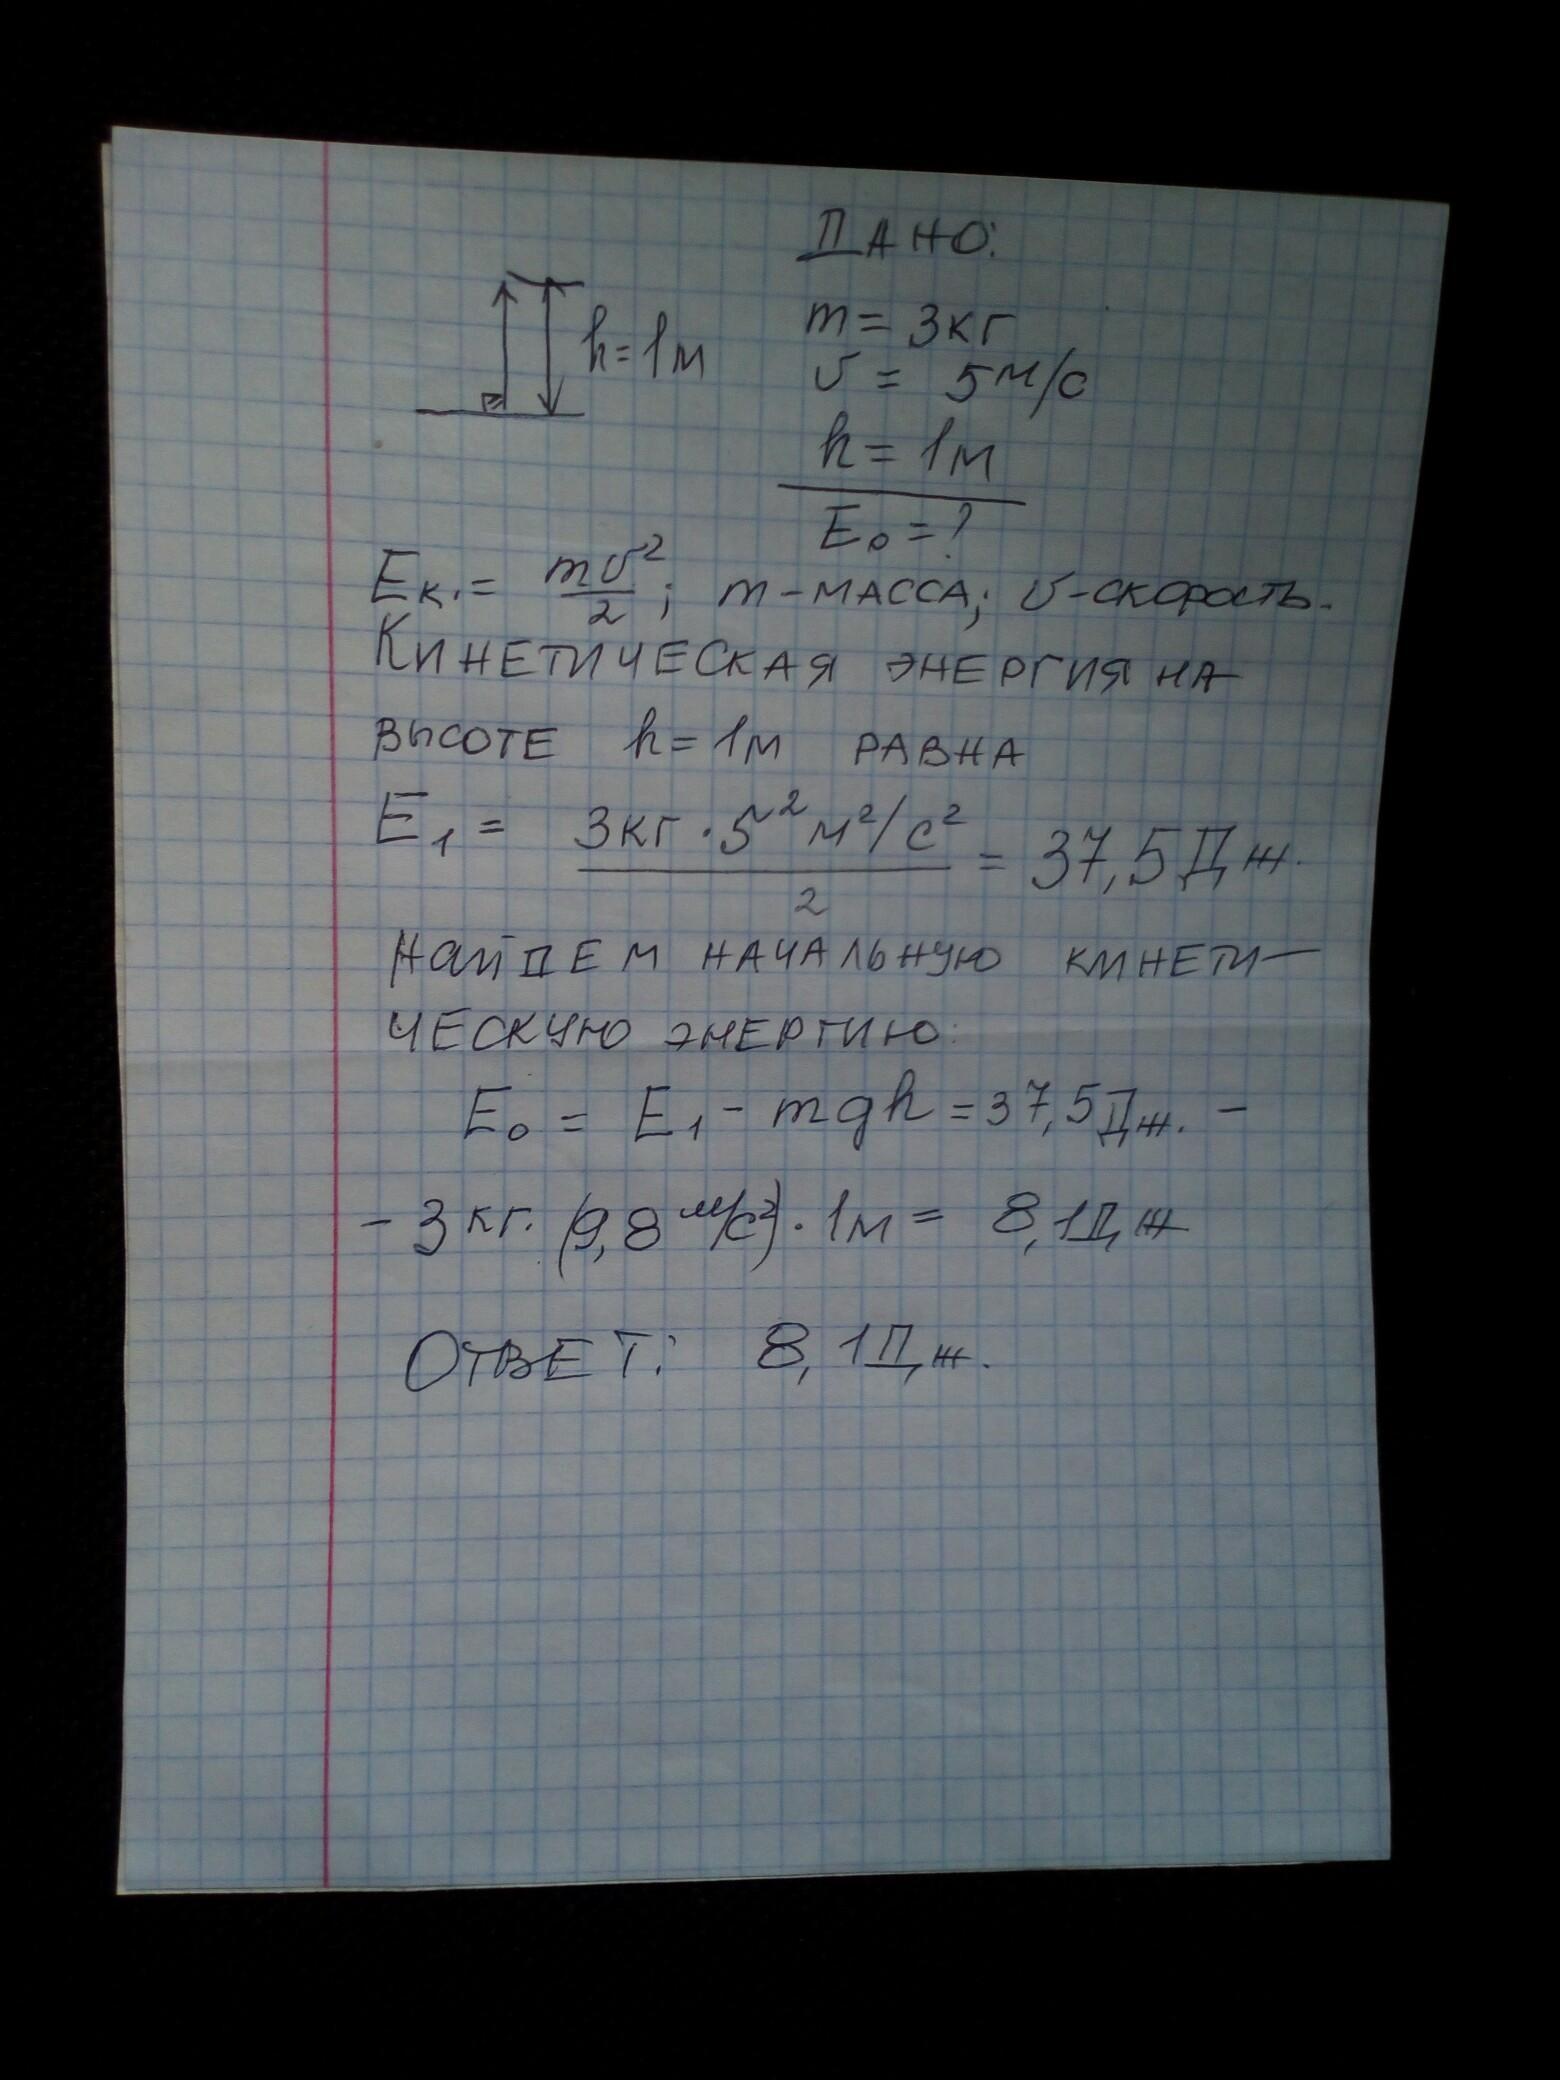 ДАНО:
h=1м
m= 3кг
v = 5м/с
h=1м
E₀=?
Eк.= mv²/2; m-масса; v-скорость.
Кинетическая энергия на
высоте h=1м равна
E₁ = 3кг·5²м²/с²/2 = 37,5Дж.
Найдем начальную кинети-
ческую энергию:
E₀ = E₁ - mgh = 37,5Дж. -
- 3кг. (9,8 м/с²)·1м = 8,1Дж
Ответ: 8,1Дж.